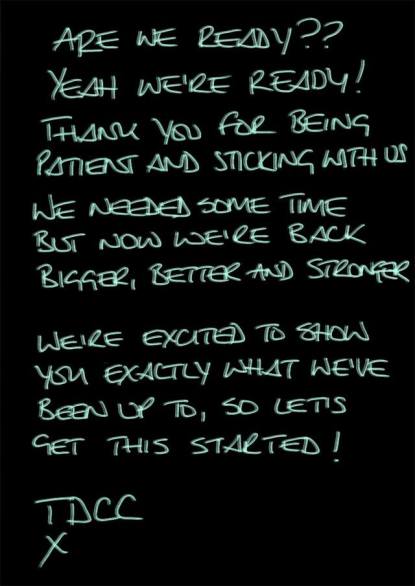 ARE WE READY??
YEAH WE'RE READY!
THANK YOU FOR BEING
PATIENT AND STICKING WITH US
WE NEEDED SOME TIME
BUT NOW WE'RE BACK
BIGGER, BETTER AND STRONGER
WE'RE EXCITED TO SHOW
YOU EXACTLY WHAT WE'VE
BEEN UP TO, SO LET'S
GET THIS STARTED!
TDCC
X